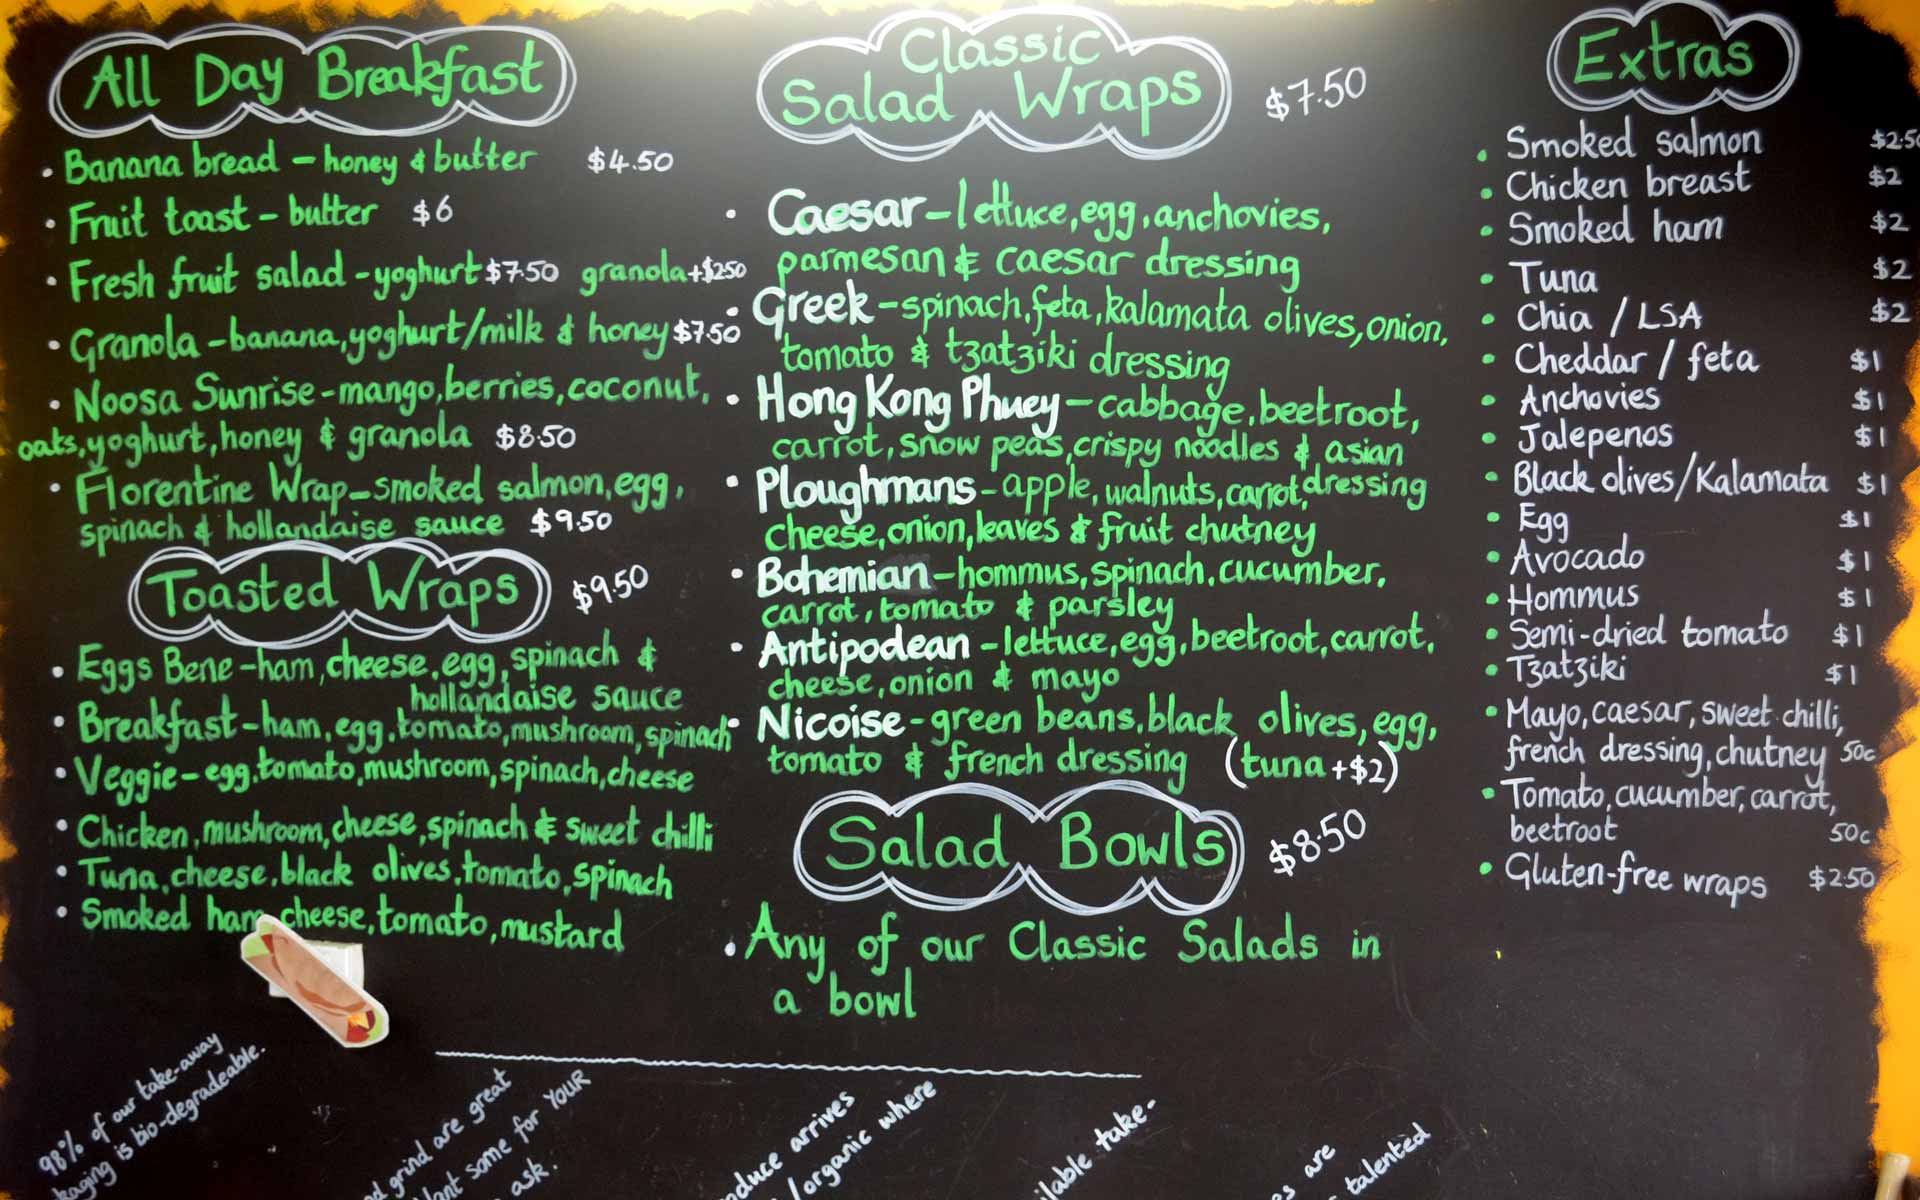 All Day Breakfast
• Banana bread - honey & butter $4.50
• Fruit toast - butter $6
• Fresh fruit salad - yoghurt $7.50 granola +$2.50
• Granola - banana, yoghurt/milk & honey $7.50
• Noosa Sunrise - mango, berries, coconut,
oats, yoghurt, honey & granola $8.50
• Florentine Wrap - smoked salmon, egg,
spinach & hollandaise sauce $9.50
Toasted Wraps $9.50
• Eggs Bene - ham, cheese, egg, spinach &
hollandaise sauce
• Breakfast - ham, egg, tomato, mushroom, spinach
• Veggie - egg, tomato, mushroom, spinach, cheese
• Chicken, mushroom, cheese, spinach & sweet chilli
• Tuna, cheese, black olives, tomato, spinach
• Smoked ham, cheese, tomato, mustard
Classic
Salad Wraps $7.50
• Caesar - lettuce, egg, anchovies,
parmesan & caesar dressing
• Greek - spinach, feta, kalamata olives, onion,
tomato & tzatziki dressing
• Hong Kong Phuey - cabbage, beetroot,
carrot, snow peas, crispy noodles & asian
dressing
• Ploughmans - apple, walnuts, carrot,
cheese, onion, leaves & fruit chutney
• Bohemian - hommus, spinach, cucumber,
carrot, tomato & parsley
• Antipodean - lettuce, egg, beetroot, carrot,
cheese, onion & mayo
• Nicoise - green beans, black olives, egg,
tomato & french dressing (tuna +$2)
Salad Bowls $8.50
• Any of our Classic Salads in
a bowl
Extras
• Smoked salmon $2.50
• Chicken breast $2
• Smoked ham $2
• Tuna $2
• Chia / LSA $2
• Cheddar / feta $1
• Anchovies $1
• Jalepenos $1
• Black olives/Kalamata $1
• Egg $1
• Avocado $1
• Hommus $1
• Semi-dried tomato $1
• Tzatziki $1
• Mayo, caesar, sweet chilli,
french dressing, chutney 50c
• Tomato, cucumber, carrot,
beetroot 50c
• Gluten-free wraps $2.50
98% of our take-away
kaging is bio-degradeable.
grind are great
some for YOUR
ask.
arrives
/organic where
take-
are
talented